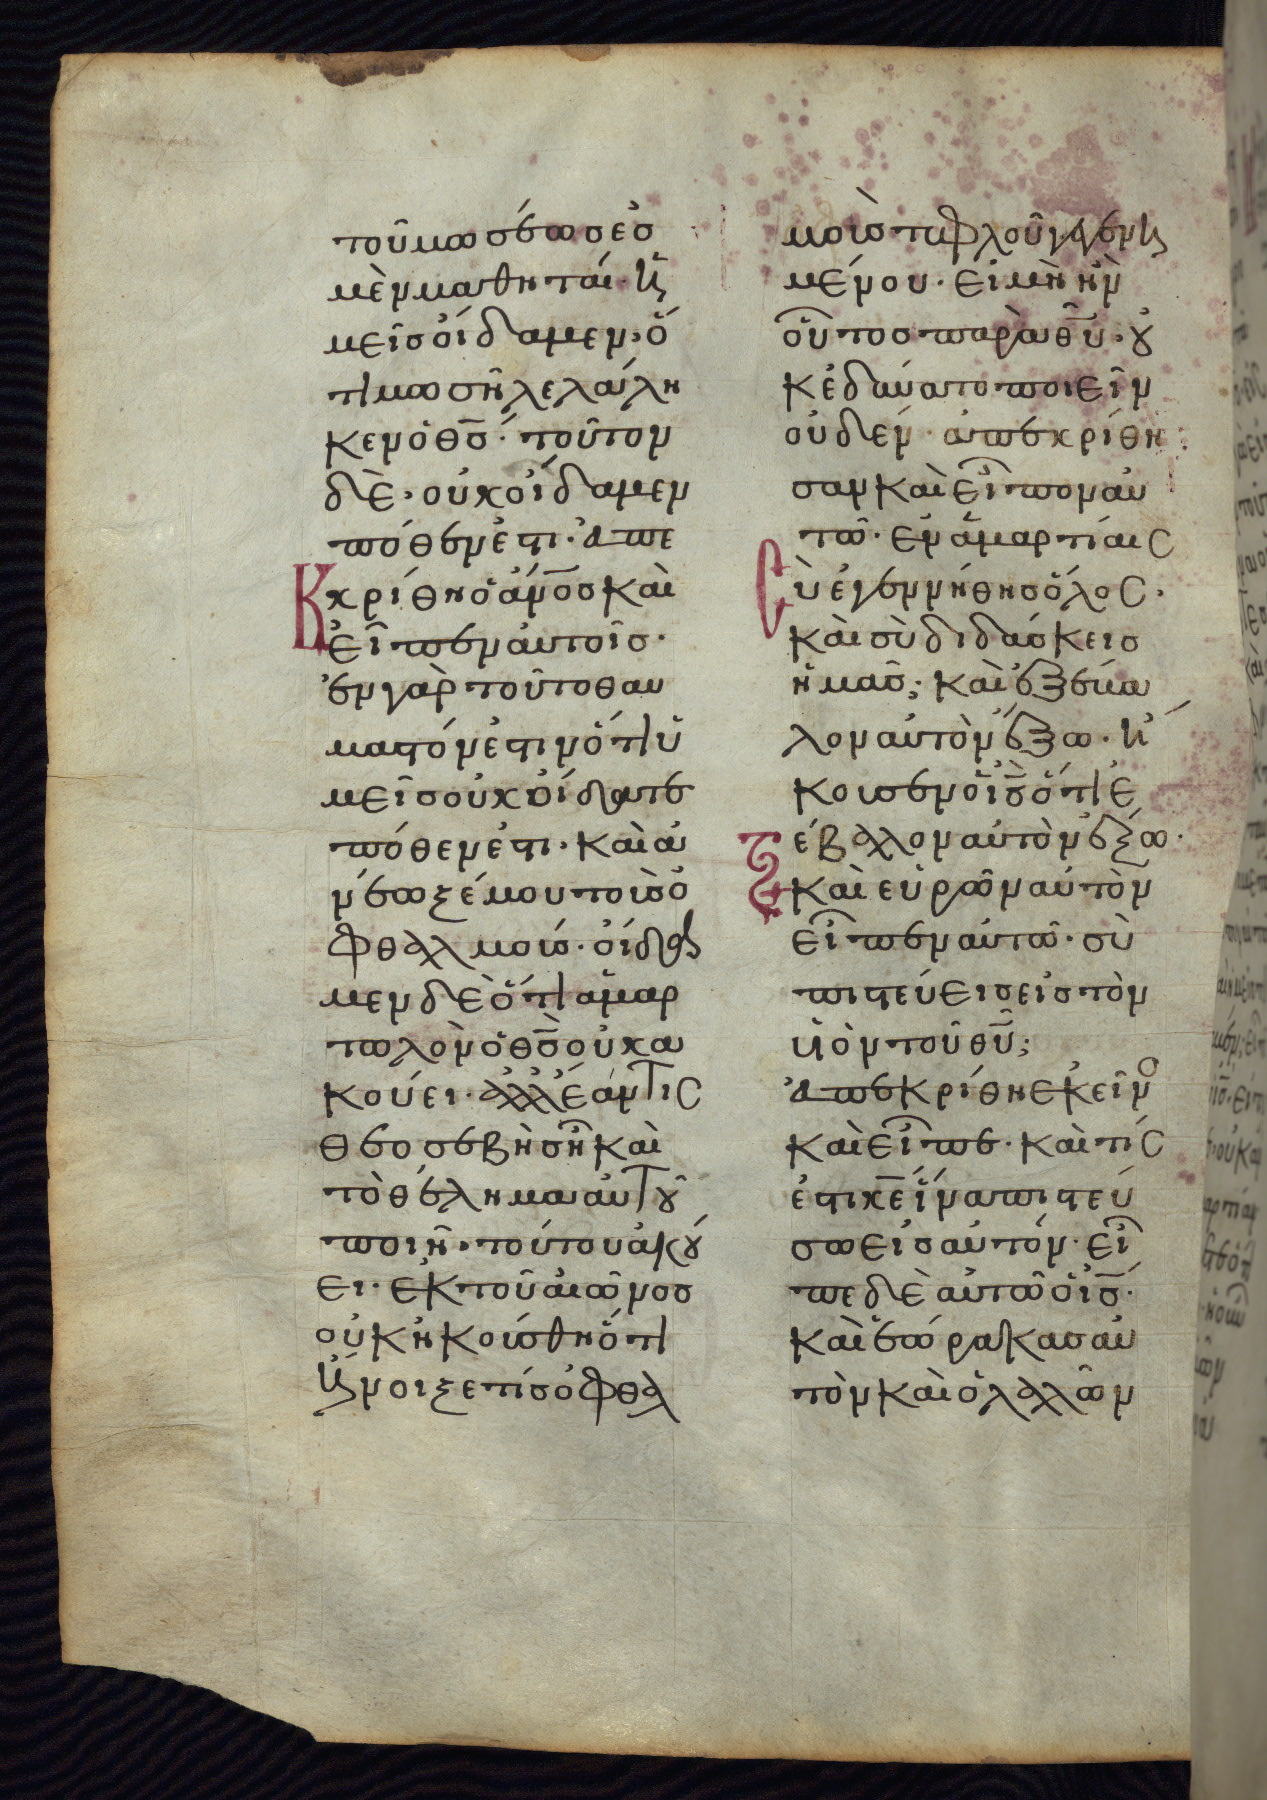 τοῦ μωσέωσ ἐσ
μὲν μαθηταί· ἡ
μεῖσ οἴδαμεν, ὅ
τι μωσῆ λελάλη
κεν ὁ θσ· τοῦτον
δὲ, οὐκ οἴδαμεν
πόθεν ἐστι· ἀπε
Κκρίθη ὁ ἀνοσ καὶ
εἶπεν αὐτοῖσ·
ἐν γὰρ τοῦτο θαυ
μαστόν ἐστιν ὅτι ὑ
μεῖσ οὐκ οἴδατε
πόθεν ἐστι· καὶ ἀ
νέωξέ μου τοὺσ ὀ
φθαλμούσ· οἴδα
μεν δὲ ὅτι ἁμαρ
τωλὸν ὁ θσ οὐκ ἀ
κούει· ἀλλ' ἐάν τισ
θεοσεβὴσ ῆ καὶ
τὸ θέλημα αὐτοῦ
ποιῆ, τούτου ἀκού
ει· ἐκ τοῦ αἰῶνοσ
οὐκ ἠκούσθη ὅτι
ἤνοιξέ τίσ ὀφθαλ
μοὺσ τυφλοῦ γεγενη
μένου· εἰ μὴ ἦν
οὗτοσ παρὰ θυ, οὐ
κ ἐδύνατο ποιεῖν
οὐδέν· ἀπεκρίθη
σαν καὶ εἶπον αυ
τῶ· ἐν ἁμαρτίαισ
Σὺ ἐγεννήθησ ὅλοσ·
καὶ σὺ διδάσκεισ
ἡμᾶσ; καὶ ἐξέβα
λον αὐτὸν ἔξω· ἤ
κουσεν ὁ ἰσ ὅτι ἐ
ξέβαλον αὐτὸν ἔξω·
καὶ εὑρὼν αὐτὸν
εἶπεν αὐτῶ· σὺ
πιστεύεισ εἰσ τὸν
υἱὸν τοῦ θυ;
ἀπεκρίθη ἐκεῖνο
καὶ εἶπε· καὶ τίσ
ἐστι κε ἵνα πιστεύ
σω εἰσ αὐτόν· εἶ
πε δὲ αὐτῶ ὁ ισ·
καὶ ἑώρακασ αὐ
τὸν καὶ ὁ λαλῶν